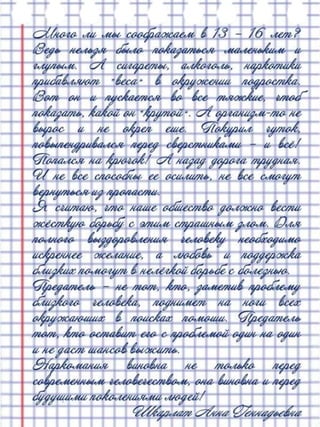 Много ли мы соображаем в 13 – 16 лет?
Ведь нельзя было показаться маленьким и
глупым. А сигареты, алкоголь, наркотики
прибавляют "веса" в окружении подростка.
Вот он и пускается во все тяжкие, чтоб
показать, какой он "крутой". А организм-то не
вырос и не окреп еще. Покурил чуток,
повыпендривался перед сверстниками – и все!
Попался на крючок! А назад дорога трудная.
И не все способны ее осилить, не все смогут
вернуться из пропасти.
Я считаю, что наше общество должно вести
жёсткую борьбу с этим страшным злом. Для
полного выздоровления человеку необходимо
искреннее желание, а любовь и поддержка
близких помогут в нелёгкой борьбе с болезнью.
Предатель – не тот, кто, заметив проблему
близкого человека, поднимет на ноги всех
окружающих в поисках помощи. Предатель
тот, кто оставит его с проблемой один на один
и не даст шансов выжить.
Наркомания виновна не только перед
современным человечеством, она виновна и перед
будущими поколениями людей!
Шкарлат Анна Геннадьевна